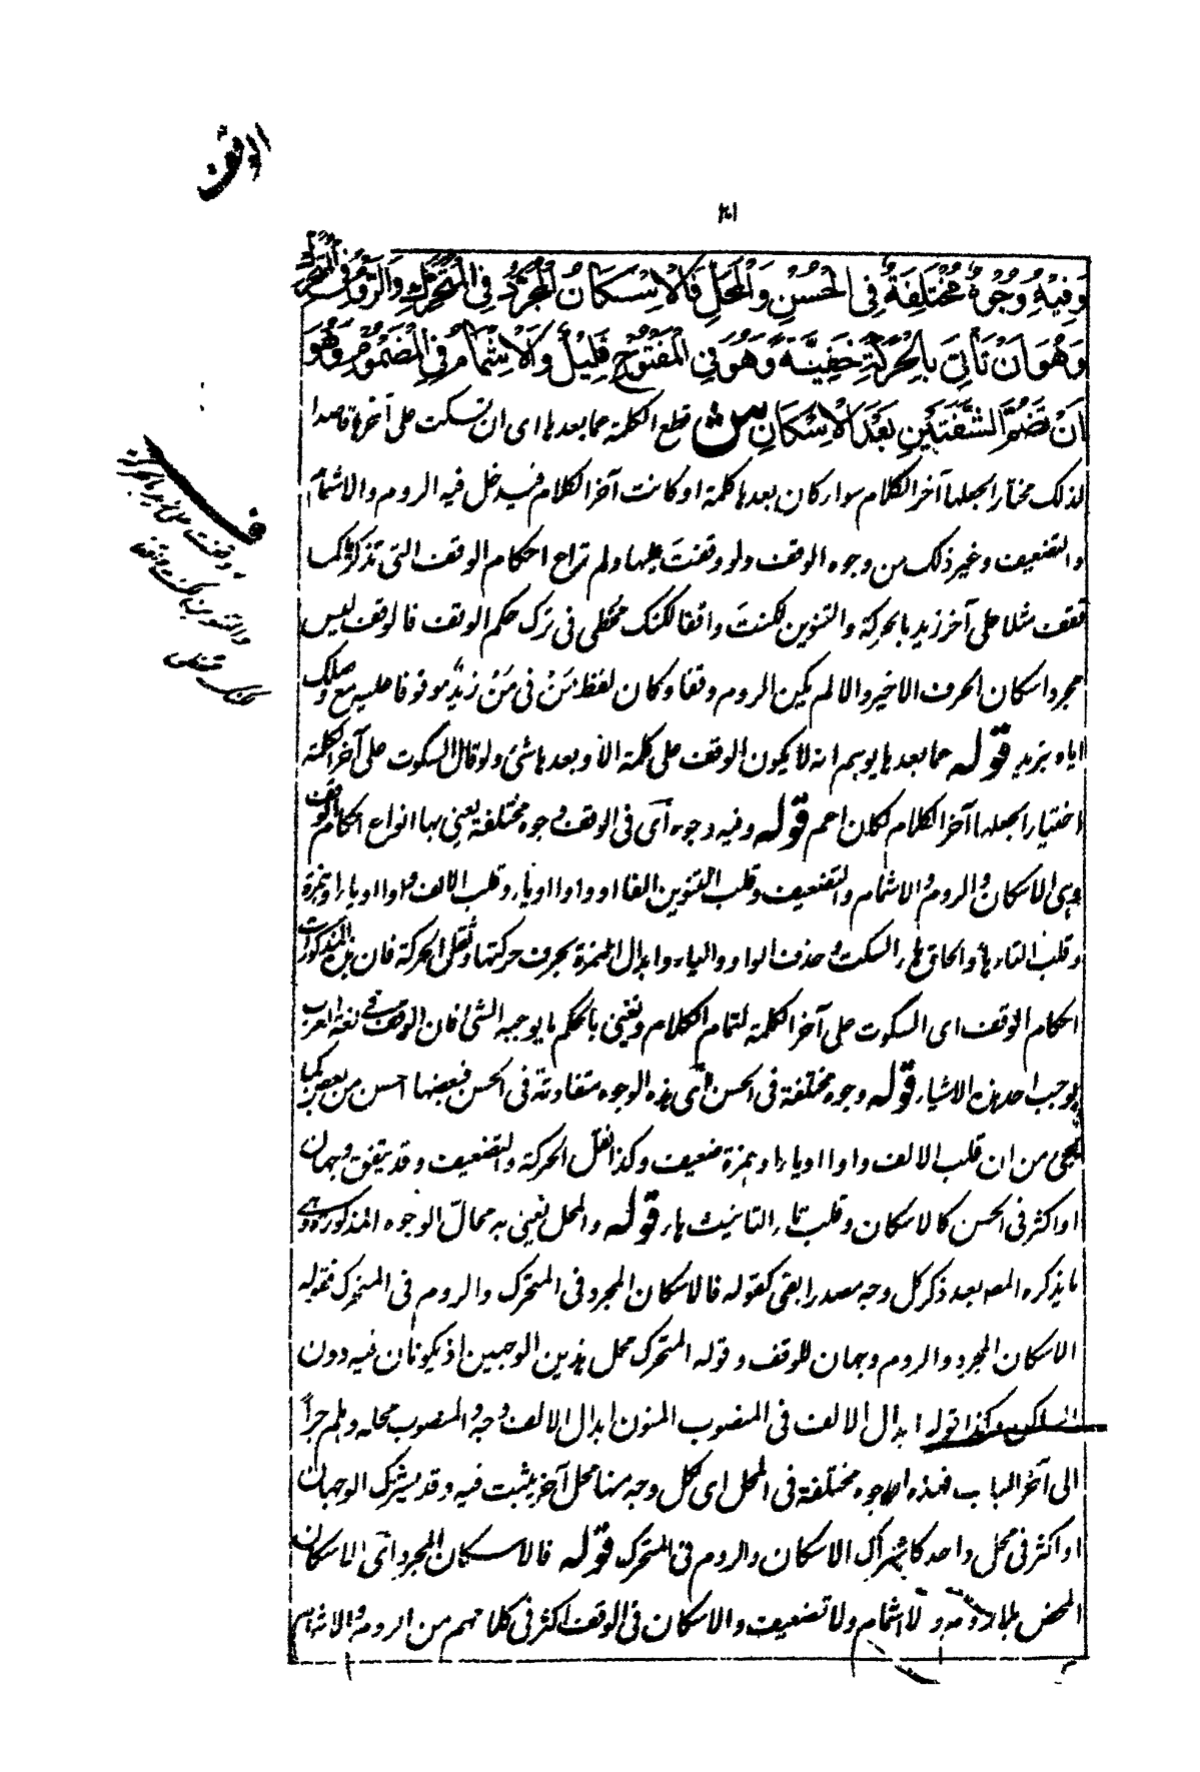 الوقف
٢٠١
وَفِيْهِ وُجُوْهٌ مُخْتَلِفَةٌ فِى الْحُسْنِ وَالْمَحَلِّ فَالْاِسْكَانُ الْمُجَرَّدُ فِى الْمُتَحَرِّكِ وَالرَّوْمُ فِى الْمُتَحَرِّكِ
وَهُوَ اَنْ تَأْتِىَ بِالْحَرَكَةِ خَفِيَّةً وَهُوَ فِى الْمَفْتُوْحِ قَلِيْلٌ وَالْاِشْمَامُ فِى الْمَضْمُوْمِ وَهُوَ
اَنْ تَضُمَّ الشَّفَتَيْنِ بَعْدَ الْاِسْكَانِ ش قطع الكلمة عما بعدها اى ان تسكت على آخرها قاصدا
لذلك مختارا لجعلها آخر الكلام سواء كان بعدها كلمة او كانت آخر الكلام فيدخل فيه الروم والاشمام
والتضعيف وغير ذلك من وجوه الوقف ولو وقفت عليها ولم تراع احكام الوقف التى تذكرها كما
تقف مثلا على آخر زيد بالحركة والتنوين لكنت واقفا لكنك مخطئ فى ترك حكم الوقف فالوقف ليس
مجرد اسكان الحرف الاخير والا لم يكن الروم وقفا وكان لفظ مَنْ فى مَنْ زيدٌ موقوفا عليه مع وصلك
اياه بزيد قوله عما بعدها يوهم انه لا يكون الوقف على كلمة الا وبعدها شئ ولو قال السكوت على آخر الكلمة
اختيارا لجعلها آخر الكلام لكان اعم قوله وفيه وجوه اى فى الوقف وجوه مختلفة يعنى بها انواع احكام الوقف
وهى الاسكان والروم والاشمام والتضعيف وقلب التنوين الفا او واوا او ياء وقلب الالف واوا او ياء او همزة
وقلب التاء هاء والحاق هاء السكت وحذف الواو والياء وابدال الهمزة بحرف حركتها ونقل الحركة فان هذه المذكورات
احكام الوقف اى السكوت على آخر الكلمة لتمام الكلام ونعنى بالحكم ما يوجبه الشئ فان الوقف فى لغة العرب
يوجب احد هذه الاشياء قوله وجوه مختلفة فى الحسن اى هذه الوجوه متفاوتة فى الحسن فبعضها احسن من بعض كما
يجئ من ان قلب الالف واوا او ياء او همزة ضعيف وكذا نقل الحركة والتضعيف وقد يتفق وجهان
او اكثر فى الحسن كالاسكان وقلب تاء التانيث هاء قوله والمحل يعنى به محال الوجوه المذكورة وهى
ما يذكره المصـ بعد ذكر كل وجه مصدرا بفى كقوله فالاسكان المجرد فى المتحرك والروم فى المتحرك فقوله
الاسكان المجرد والروم وجهان للوقف وقوله المتحرك محل هذين الوجهين اذ يكونان فيه دون
الساكن وكذا قوله ابدال الالف فى المنصوب المنون ابدال الالف وجه والمنصوب محله وهلم جرا
الى آخر الباب فهذه الوجوه مختلفة فى المحل اى لكل وجه منها محل آخر يثبت فيه وقد يشترك الوجهان
او اكثر فى محل واحد كاشتراك الاسكان والروم فى المتحرك قوله فالاسكان المجرد اى الاسكان
المحض بلا روم و لا اشمام ولا تضعيف والاسكان فى الوقف اكثر فى كلامهم من الروم والاشمام